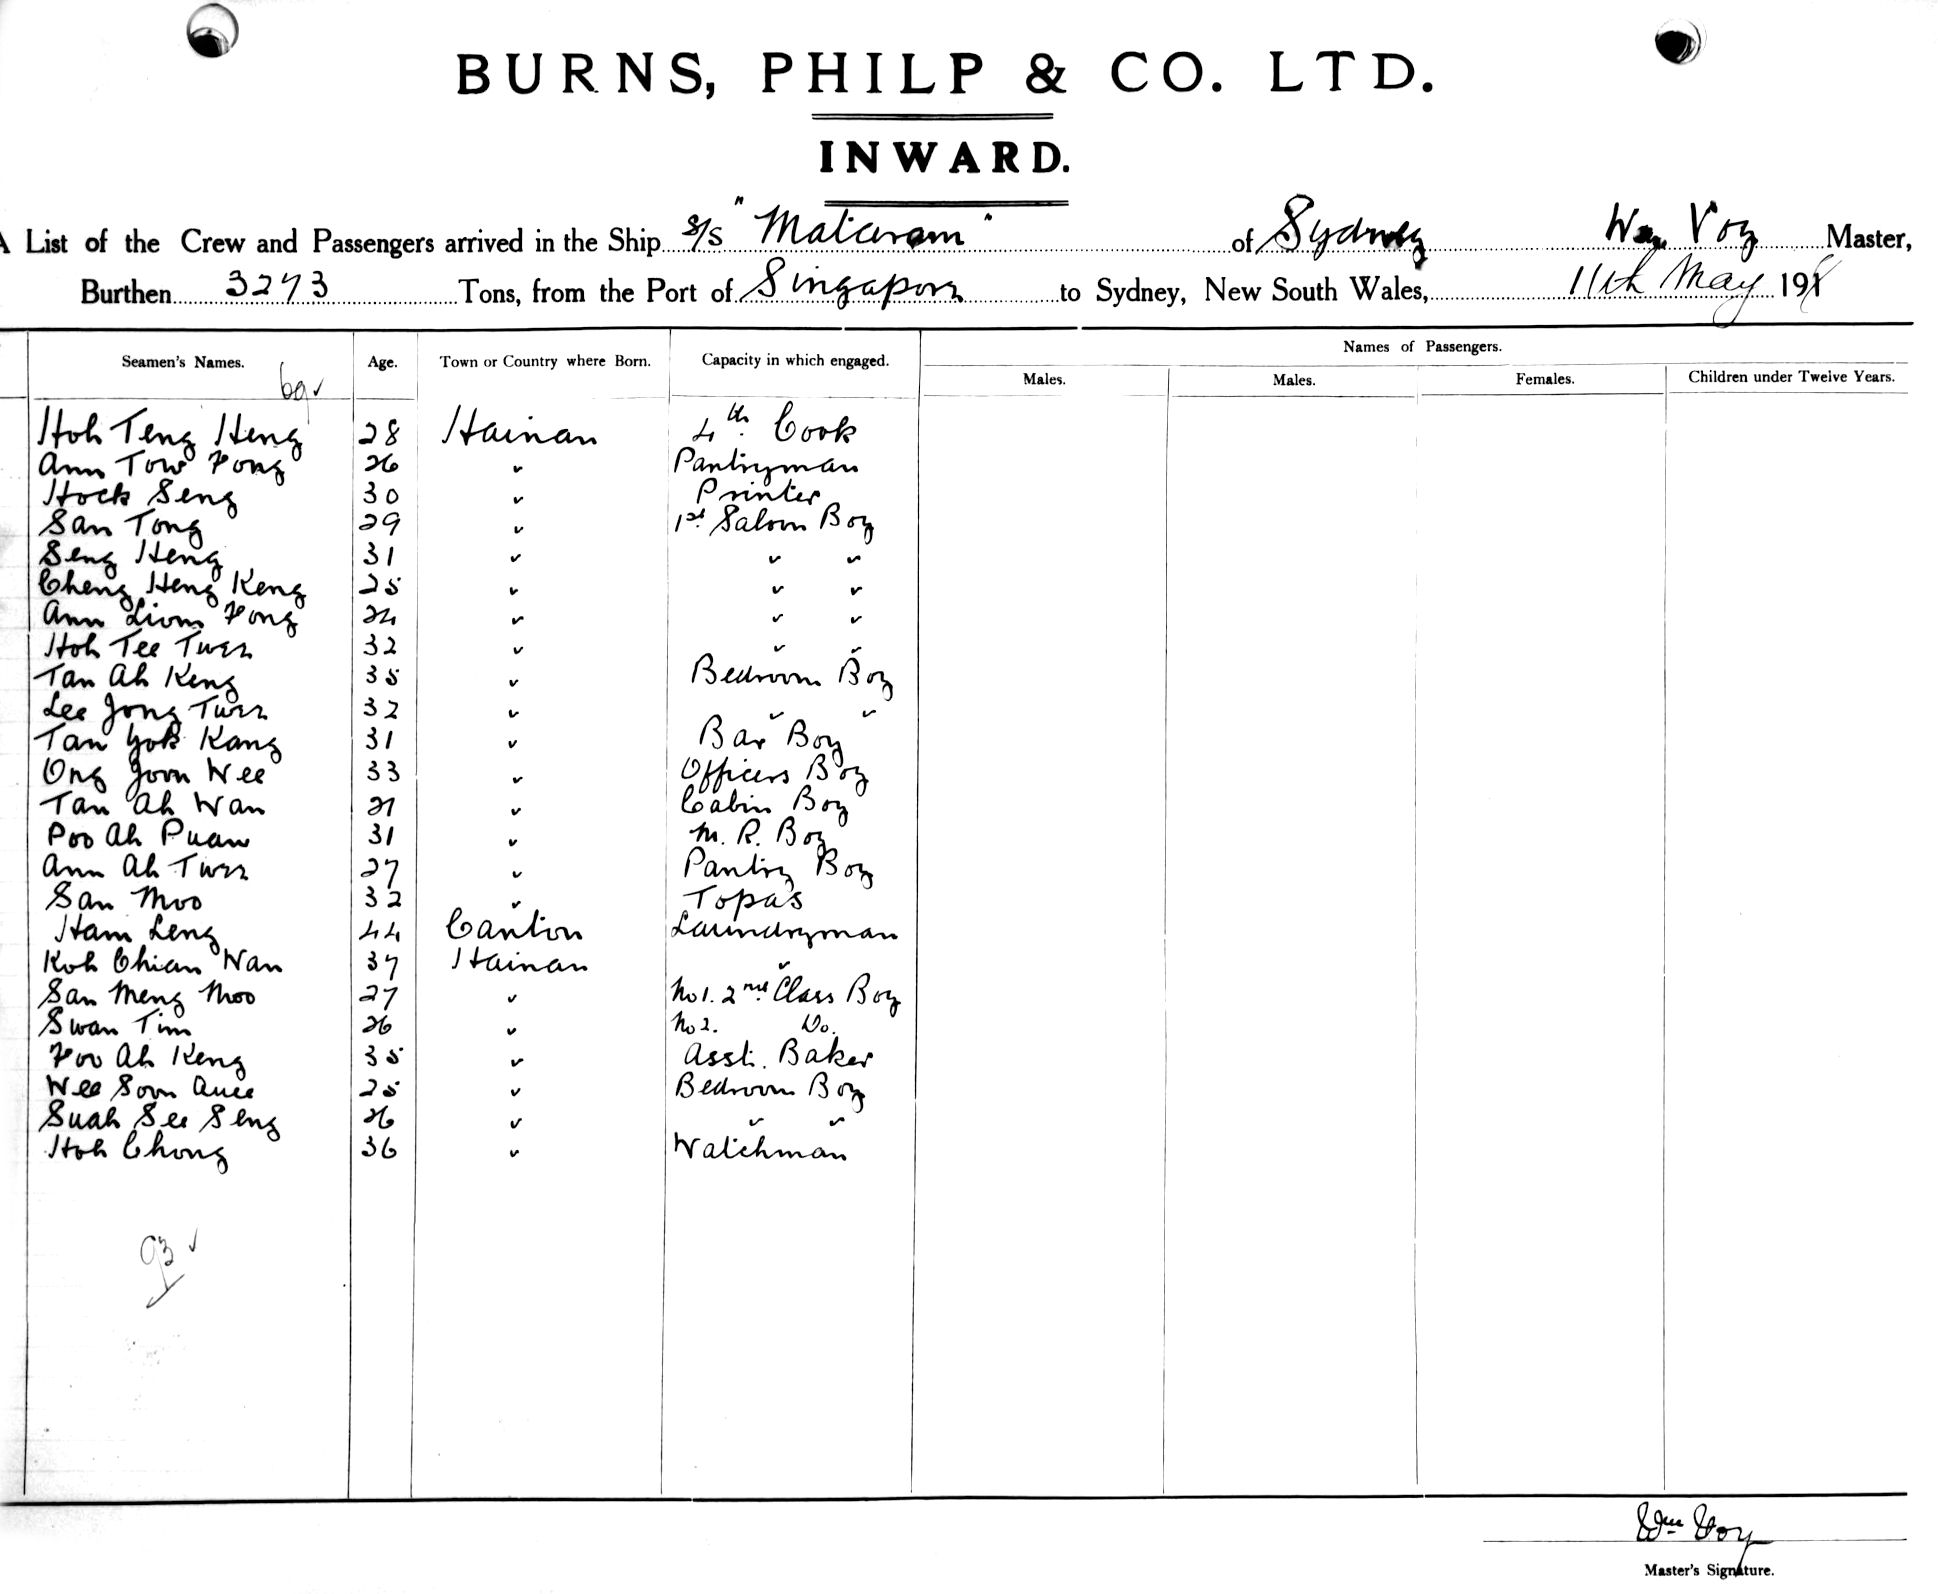 BURNS, PHILP & CO. LTD.
INWARD.
A List of the Crew and Passengers arrived in the Ship S/S "Mataram" of Sydney Wm. Voy Master,
Burthen 3273 Tons, from the Port of Singapore to Sydney, New South Wales, 11th May 191
Names of Passengers.
Seamen's Names. Age. Town or Country where Born. Capacity in which engaged. Males. Males. Females. Children under Twelve Years.
69 ✓
Hoh Teng Heng 28 Hainan 4th Cook
Ann Tow Fong 26 " Pantryman
Hock Seng 30 " Printer
San Tong 29 " 1st Saloon Boy
Seng Heng 31 " " "
Cheng Heng Keng 25 " " "
Ann Liom Fong 24 " " "
Hoh Tee Twee 32 " " "
Tan Ah Keng 35 " Bedroom Boy
Lee Jong Twee 32 " " "
Tan Yok Kang 31 " Bar Boy
Ong Joon Wee 33 " Officers Boy
Tan Ah Wan 21 " Cabin Boy
Poo Ah Puan 31 " M. R. Boy
Ann Ah Twee 27 " Pantry Boy
San Moo 32 " Topas
Ham Leng 44 Canton Laundryman
Koh Chian Wan 37 Hainan "
San Meng Moo 27 " No 1. 2nd Class Boy
Swan Tim 26 " No 2. Do.
Foo Ah Keng 35 " Asst. Baker
Wee Soon Quee 25 " Bedroom Boy
Suah See Seng 26 " " "
Hoh Chong 36 " Watchman
93 ✓
Wm Voy
Master's Signature.